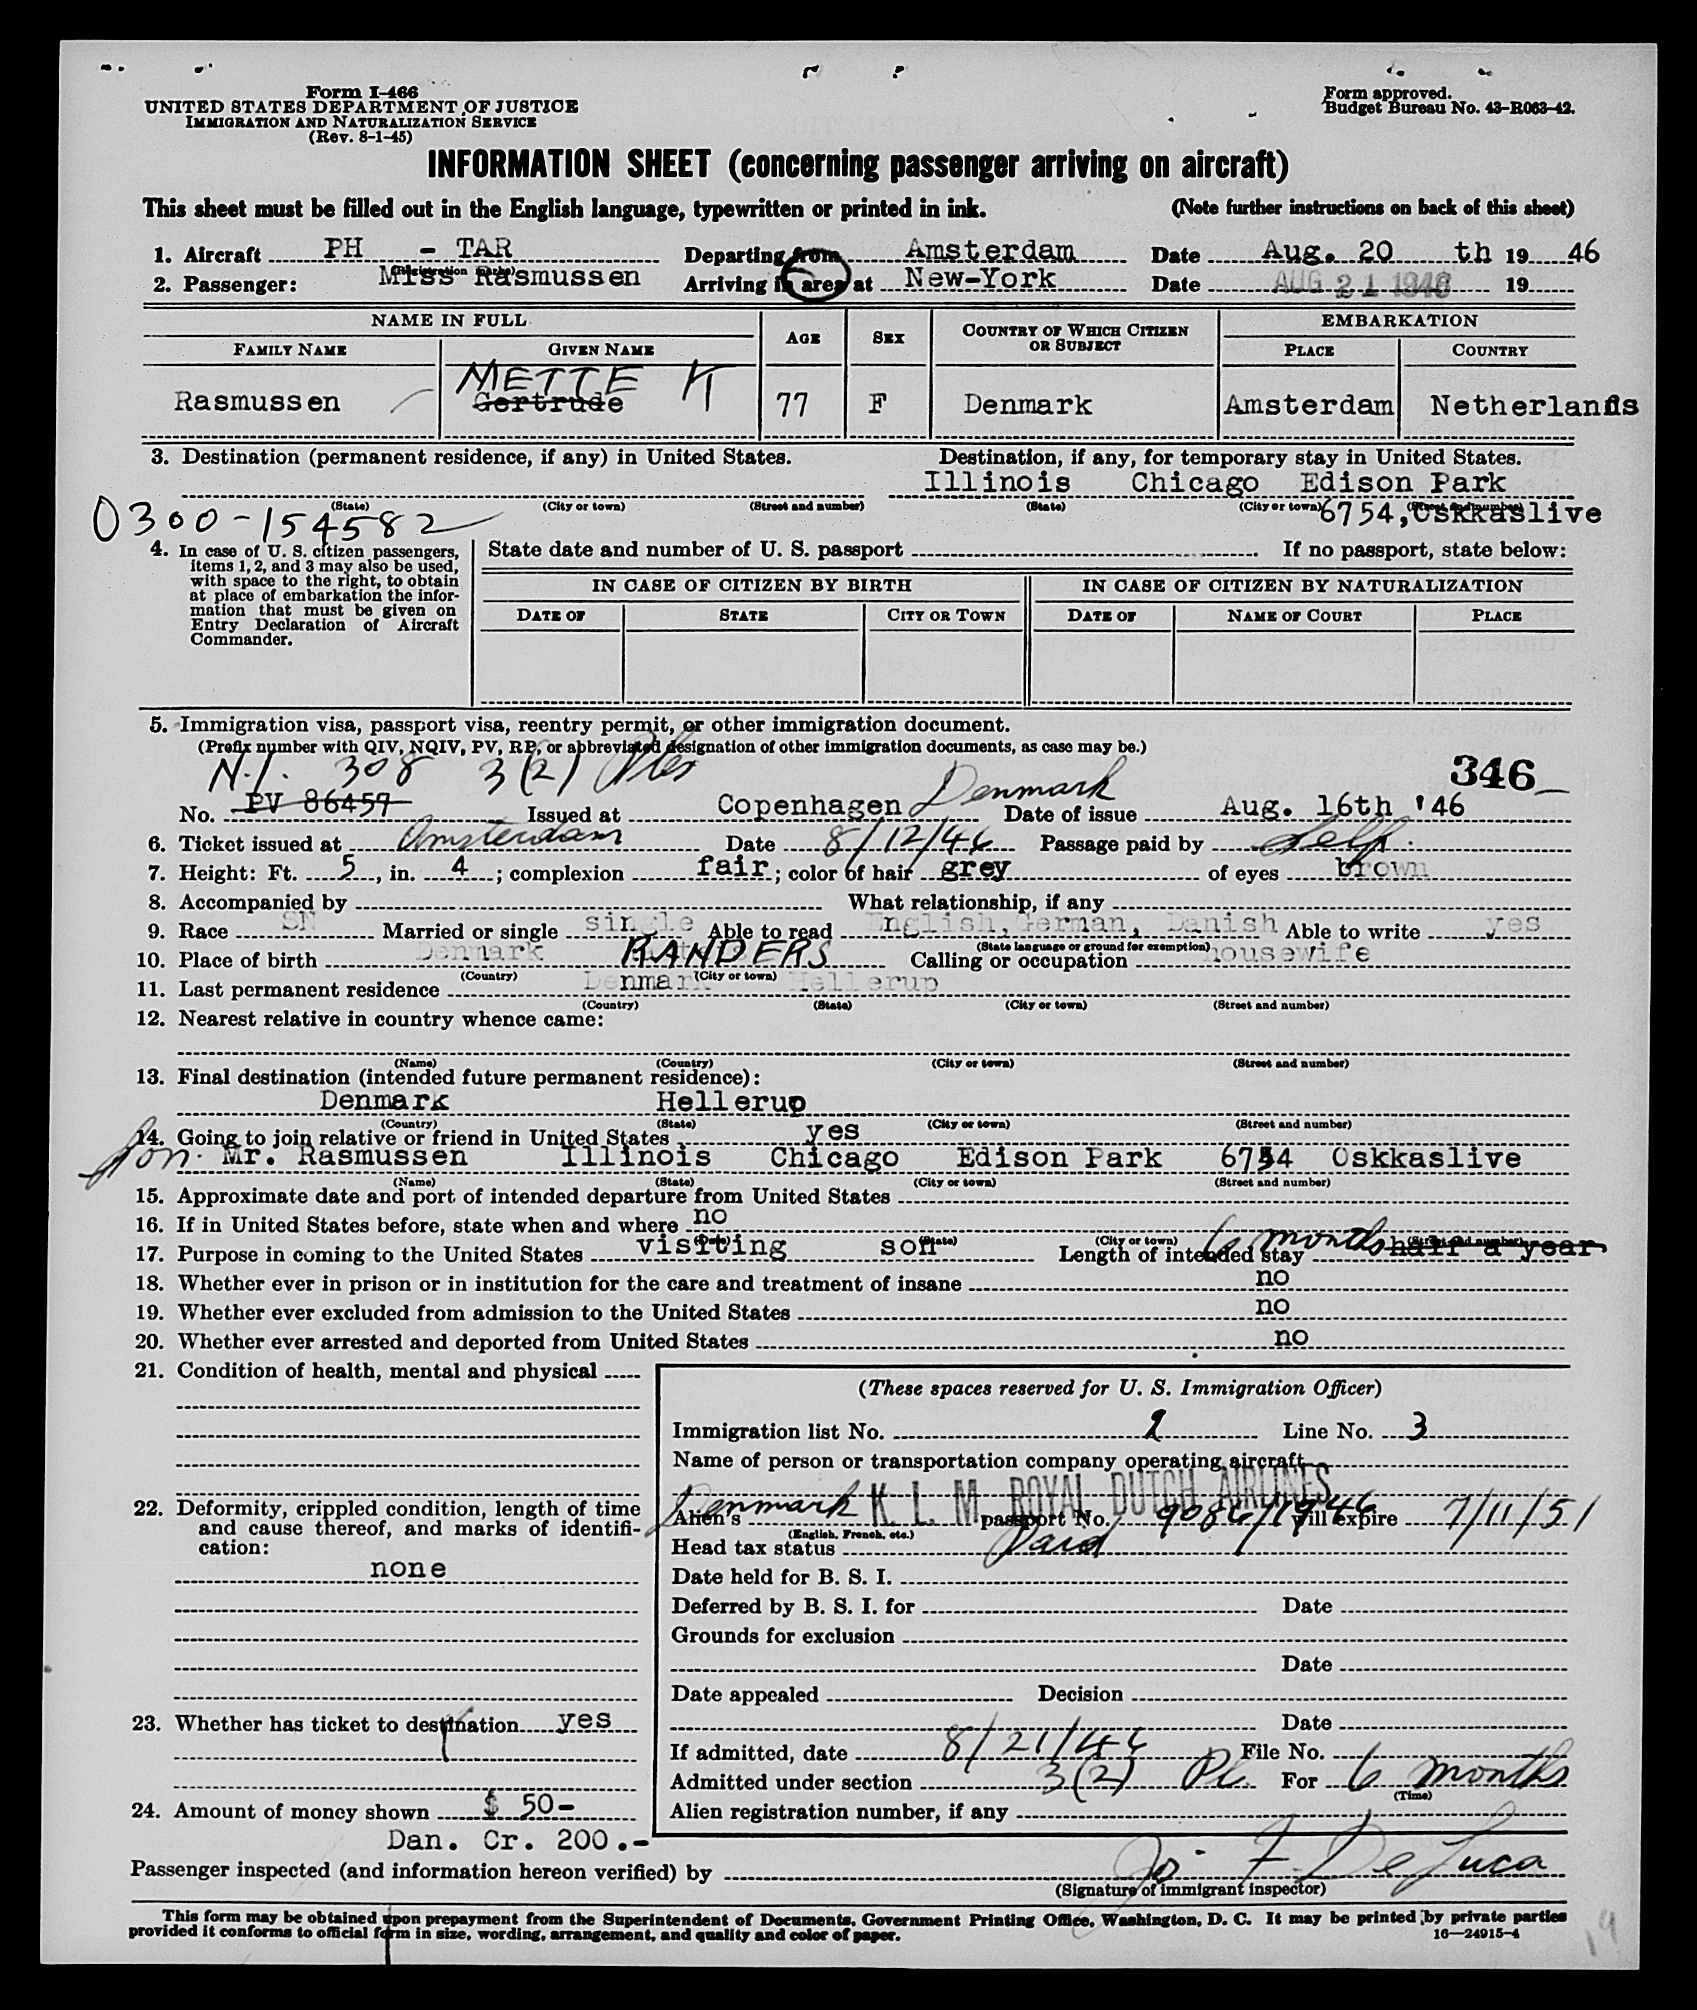 Form I-466
UNITED STATES DEPARTMENT OF JUSTICE
IMMIGRATION AND NATURALIZATION SERVICE
(Rev. 8-1-45)
Form approved.
Budget Bureau No. 43-R063-42.
INFORMATION SHEET (concerning passenger arriving on aircraft)
This sheet must be filled out in the English language, typewritten or printed in ink. (Note further instructions on back of this sheet)
1. Aircraft PH - TAR Departing from Amsterdam Date Aug. 20 th 19 46
(Registration marks)
2. Passenger: Miss Rasmussen Arriving in area at New-York Date AUG 21 1946 19
NAME IN FULL AGE SEX COUNTRY OF WHICH CITIZEN OR SUBJECT EMBARKATION
FAMILY NAME GIVEN NAME PLACE COUNTRY
METTE K
Rasmussen Gertrude 77 F Denmark Amsterdam Netherlands
3. Destination (permanent residence, if any) in United States. Destination, if any, for temporary stay in United States.
Illinois Chicago Edison Park
(State) (City or town) (Street and number) (State) (City or town) (Street and number)
6754, Oskkaslive
0300-154582
4. In case of U. S. citizen passengers, items 1, 2, and 3 may also be used, with space to the right, to obtain at place of embarkation the information that must be given on Entry Declaration of Aircraft Commander.
State date and number of U. S. passport If no passport, state below:
IN CASE OF CITIZEN BY BIRTH IN CASE OF CITIZEN BY NATURALIZATION
DATE OF STATE CITY OR TOWN DATE OF NAME OF COURT PLACE
5. Immigration visa, passport visa, reentry permit, or other immigration document.
(Prefix number with QIV, NQIV, PV, RP, or abbreviated designation of other immigration documents, as case may be.)
N.I. 308 3(2) 346
No. PV 86457 Issued at Copenhagen Denmark Date of issue Aug. 16th '46
6. Ticket issued at Amsterdam Date 8/12/46 Passage paid by Self
7. Height: Ft. 5, in. 4; complexion fair; color of hair grey of eyes brown
8. Accompanied by What relationship, if any
9. Race SN Married or single single Able to read English, German, Danish Able to write yes
(State language or ground for exemption)
10. Place of birth Denmark RANDERS Calling or occupation housewife
(Country) (City or town)
11. Last permanent residence Denmark Hellerup
(Country) (State) (City or town) (Street and number)
12. Nearest relative in country whence came:
(Name) (Country) (City or town) (Street and number)
13. Final destination (intended future permanent residence):
Denmark Hellerup
(Country) (State) (City or town) (Street and number)
14. Going to join relative or friend in United States yes
Son. Mr. Rasmussen Illinois Chicago Edison Park 6754 Oskkaslive
(Name) (State) (City or town) (Street and number)
15. Approximate date and port of intended departure from United States
16. If in United States before, state when and where no
(Date) (State) (City or town) (Street and number)
17. Purpose in coming to the United States visiting son Length of intended stay 6 months half a year
18. Whether ever in prison or in institution for the care and treatment of insane no
19. Whether ever excluded from admission to the United States no
20. Whether ever arrested and deported from United States no
21. Condition of health, mental and physical
22. Deformity, crippled condition, length of time and cause thereof, and marks of identification:
none
23. Whether has ticket to destination yes
24. Amount of money shown $ 50-
Dan. Cr. 200.-
(These spaces reserved for U. S. Immigration Officer)
Immigration list No. 2 Line No. 3
Name of person or transportation company operating aircraft
K. L. M. ROYAL DUTCH AIRLINES
Alien's Denmark passport No. 9086/1946 will expire 7/11/51
(English, French, etc.)
Head tax status Paid
Date held for B. S. I.
Deferred by B. S. I. for Date
Grounds for exclusion
Date
Date appealed Decision
Date
If admitted, date 8/21/46 File No.
Admitted under section 3(2) PL For 6 months
(Time)
Alien registration number, if any
Passenger inspected (and information hereon verified) by Jos. F. DeLuca
(Signature of immigrant inspector)
This form may be obtained upon prepayment from the Superintendent of Documents, Government Printing Office, Washington, D. C. It may be printed by private parties
provided it conforms to official form in size, wording, arrangement, and quality and color of paper.
16—24915-4
19